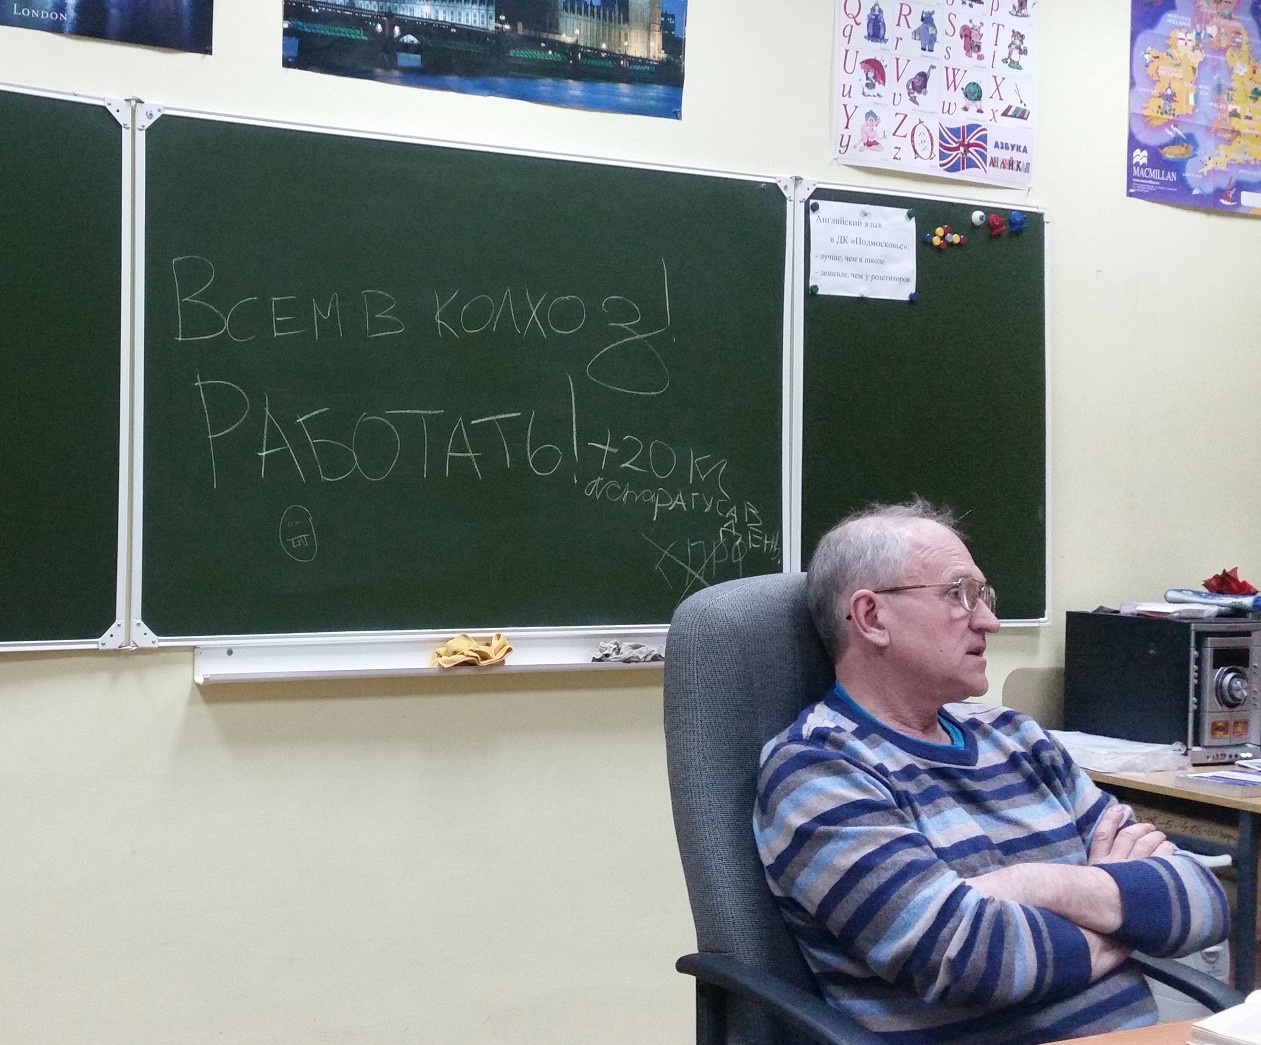 LONDON
Q R S P
q r s T
U V W X
u v w x
Y Z
y z
АЗБУКА
АНГЛИЙСКАЯ
MACMILLAN
Английский язык
в ДК «Подмосковье»:
- лучше, чем в школе
- дешевле, чем у репетиторов
Всем в колхоз!
Работать! +20 кг
аспарагуса в
день